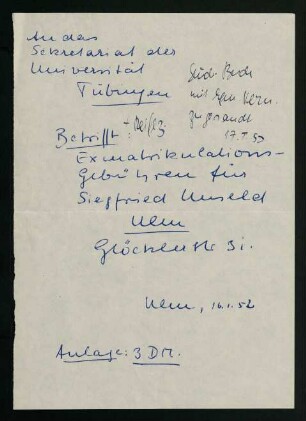 An das
Sekretariat der
Universität
Tübingen
Stud. Buch
mit
zugesandt
17.1.52
Betrifft
Exmatrikulations-
Gebühren für
Siegfried Unseld
Ulm
Glöcklerstr. 31.
Ulm, 16.1.52
Anlage: 3 DM.